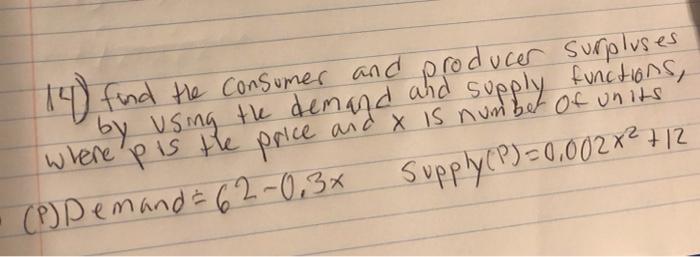 14) find the consumer and producer surpluses
by using the demand and supply functions,
where p is the price and x is number of units
(P)Demand = 62-0.3x Supply(P)=0.002x² +12